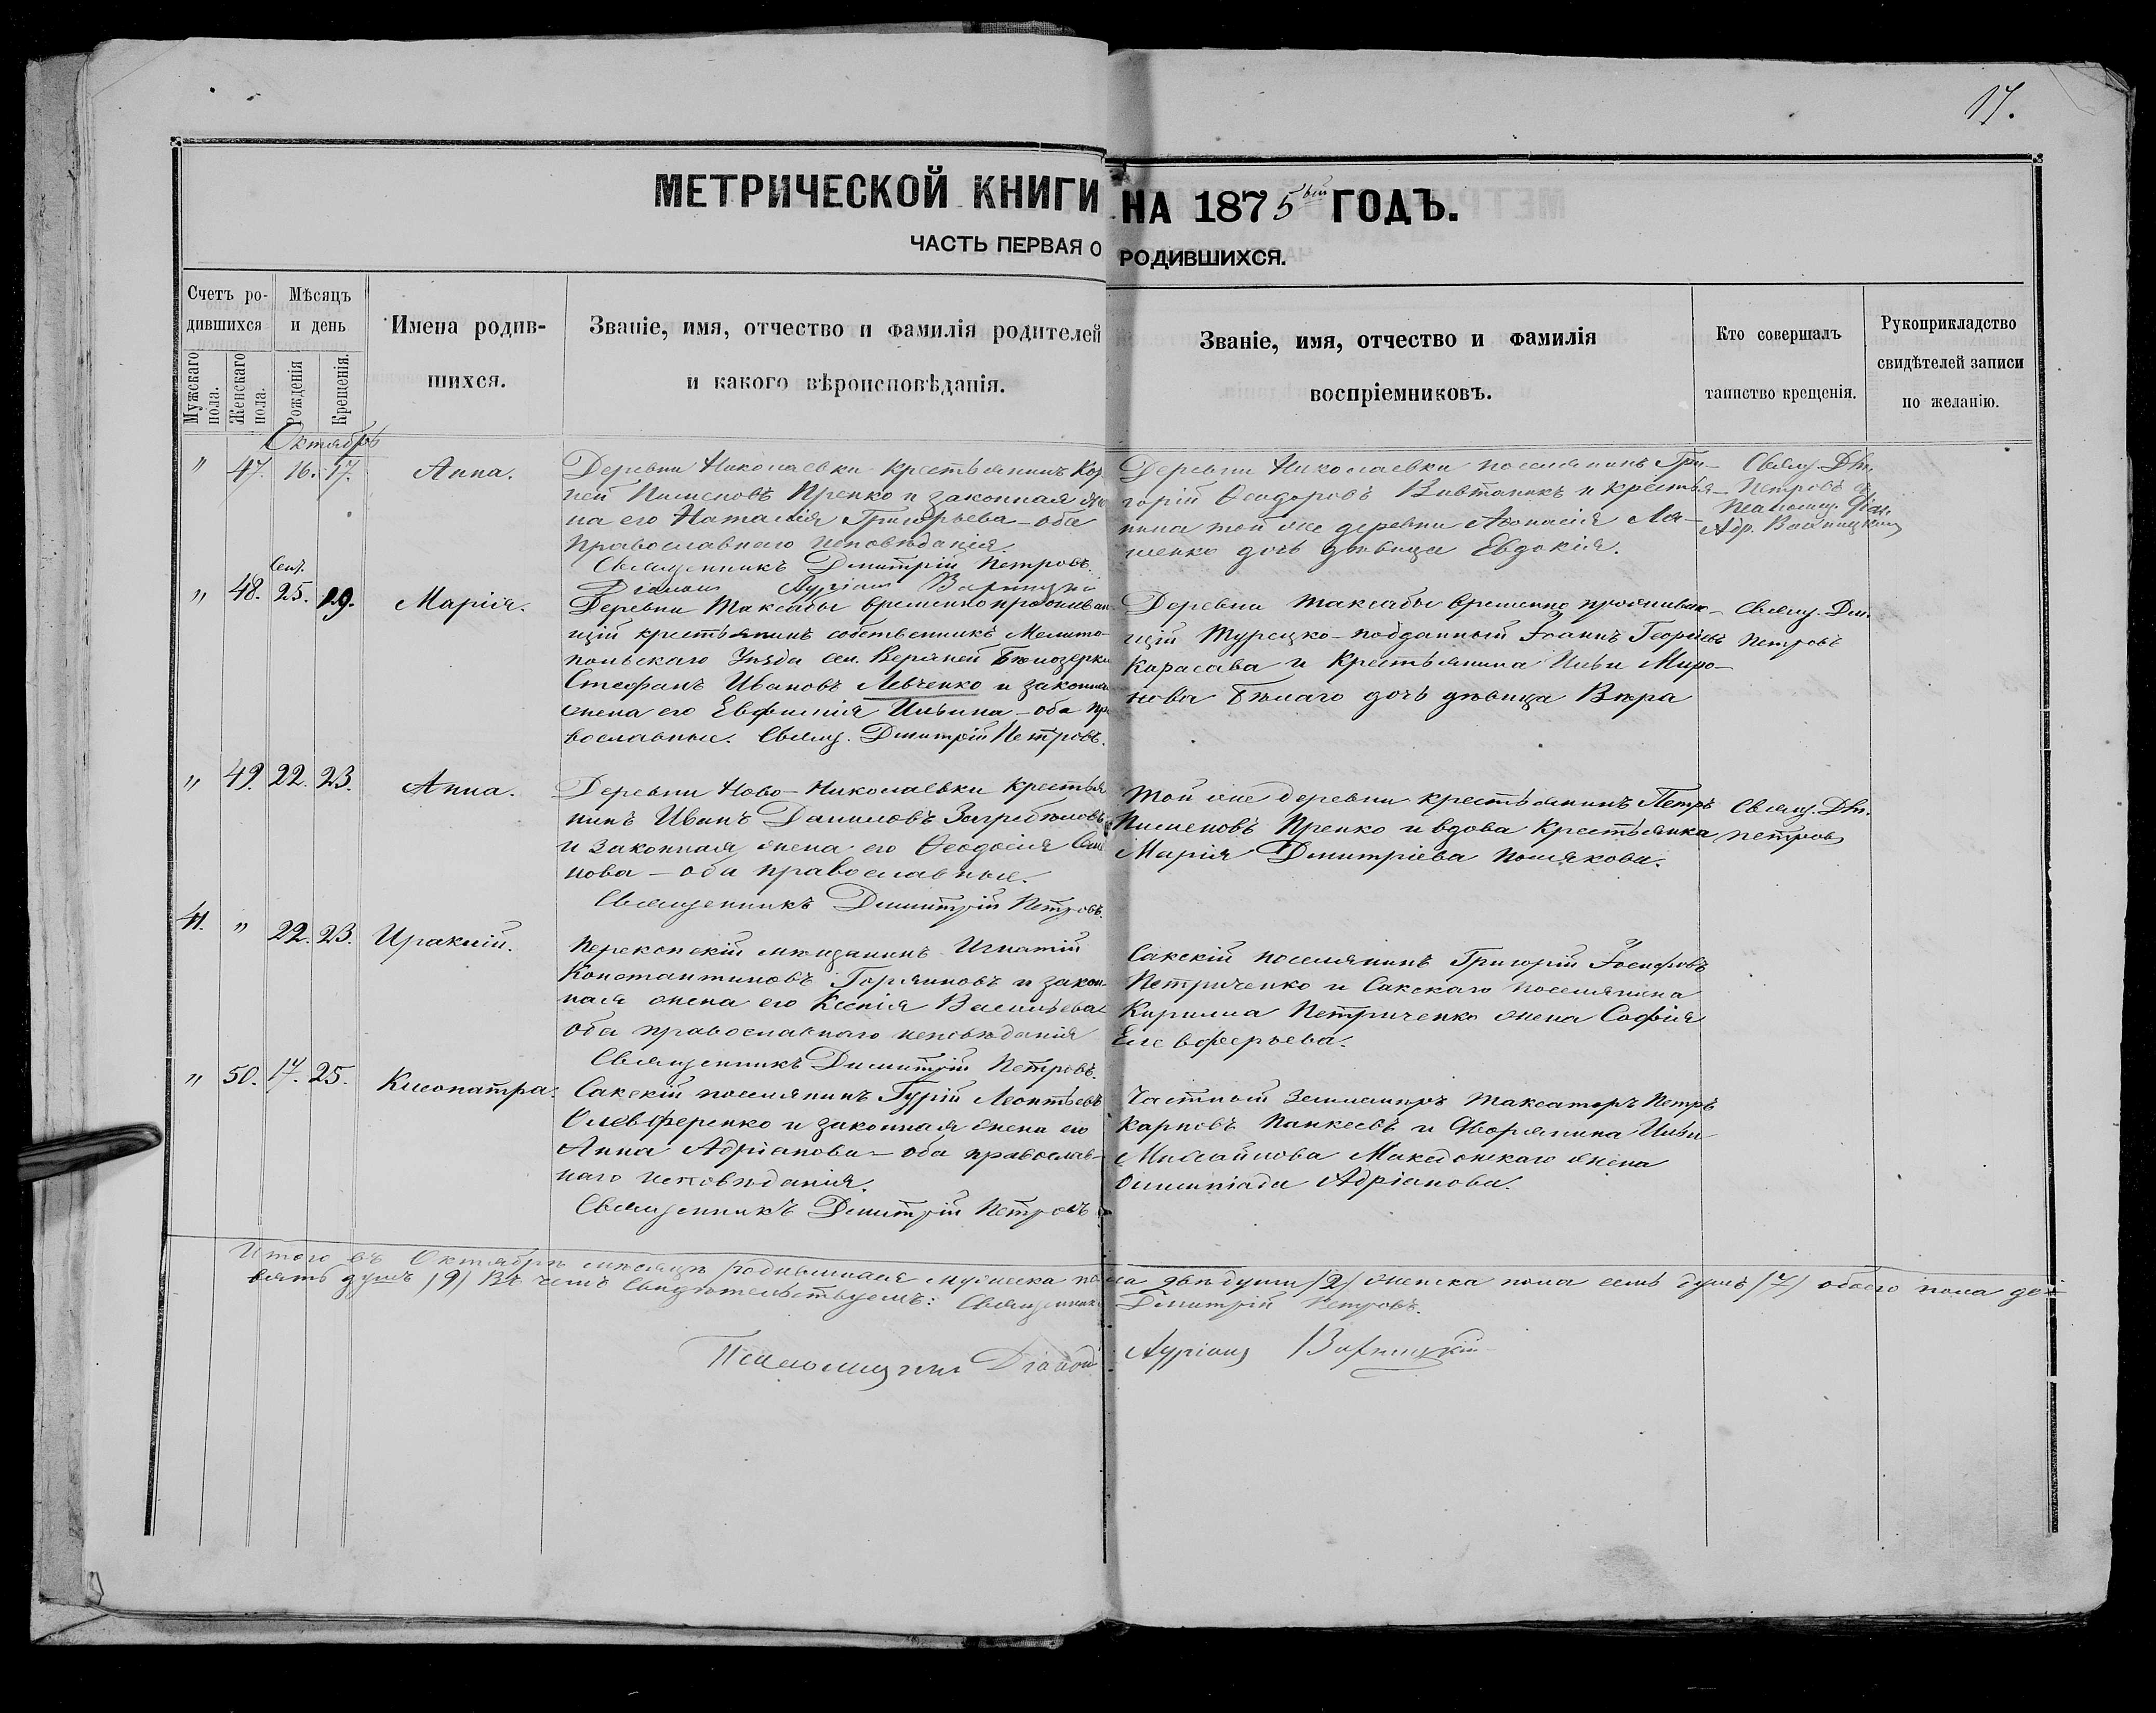 17.
МЕТРИЧЕСКОЙ КНИГИ НА 1875ый ГОДЪ.
ЧАСТЬ ПЕРВАЯ О РОДИВШИХСЯ.
Счетъ ро-
дившихся
Мужскаго пола.
Женскаго пола.
Мѣсяцъ
и день
Рожденія
Крещенія.
Имена родив-
шихся.
Званіе, имя, отчество и фамилія родителей
и какого вѣроисповѣданія.
Званіе, имя, отчество и фамилія
воспріемниковъ.
Кто совершалъ
таинство крещенія.
Рукоприкладство
свидѣтелей записи
по желанію.
Октябрь
" 47. 16. 17. Анна.
Деревни Николаевки крестьянинъ Кор
ней Пименовъ Препко и законная же
на его Наталія Григорьева - оба
православнаго исповѣданія.
Священникъ Димитрій Петровъ.
Діаконъ
Деревни Николаевки поселянинъ Гри-
горій Ѳеодоровъ и крестья-
нина той же деревни Аѳанасія Ля-
шенко дочь дѣвица Евдокія.
Свящ. Дм.
Петровъ
" 48. Сент. 25. 19. Марія.
Деревни Таксабы временно проживаю
щій крестьянинъ собственникъ Мелито-
польскаго Уѣзда сел. Верхней Бѣлозерки
Стефанъ Ивановъ Левченко и законная
жена его Евфимія Ильина - оба пра
вославные. Свящ. Димитрій Петровъ.
Деревни Таксабы временно проживаю-
щій Турецко-подданный Іоаннъ Георгіевъ
Карасава и Крестьянина Ильи Миро-
нова Бѣлаго дочь дѣвица Вѣра
Свящ. Дим.
Петровъ
" 49. 22. 23. Анна.
Деревни Ново-Николаевки крестья
нинъ Иванъ Даниловъ Загребѣловъ
и законная жена его Ѳеодосія
нова - оба православные.
Священникъ Димитрій Петровъ.
Той же деревни крестьянинъ Петръ
Пименовъ Препко и вдова Крестьянка
Марія Димитріева Полякова.
Свящ. Дм.
Петровъ
41. " 22. 23. Ираклій.
Перекопскій мѣщанинъ Игнатій
Константиновъ Горяиновъ и закон-
ная жена его Ксенія Васильева
оба православнаго исповѣданія
Священникъ Димитрій Петровъ.
Сакскій поселянинъ Григорій Іосифовъ
Петриченко и Сакскаго поселянина
Кирилла Петриченко жена Софія
Елевферьева.
" 50. 17. 25. Клеопатра.
Сакскій поселянинъ Гурій Леонтьевъ
Олевференко и законная жена его
Анна Адріанова - оба православ-
наго исповѣданія.
Священникъ Димитрій Петровъ
Частный Землемѣръ Таксаторъ Петръ
Карповъ Панкеевъ и Дворянина Ильи
Михайлова Македонскаго жена
Олимпіада Адріанова.
Итого въ Октябрѣ мѣсяцѣ родившихся мужеска пола двѣ души /2/ женска пола семь душъ /7/ обоего пола де-
вять душъ /9/ Въ чемъ свидѣтельствуемъ: Священникъ Димитрій Петровъ.
Псаломщикъ Діаконъ